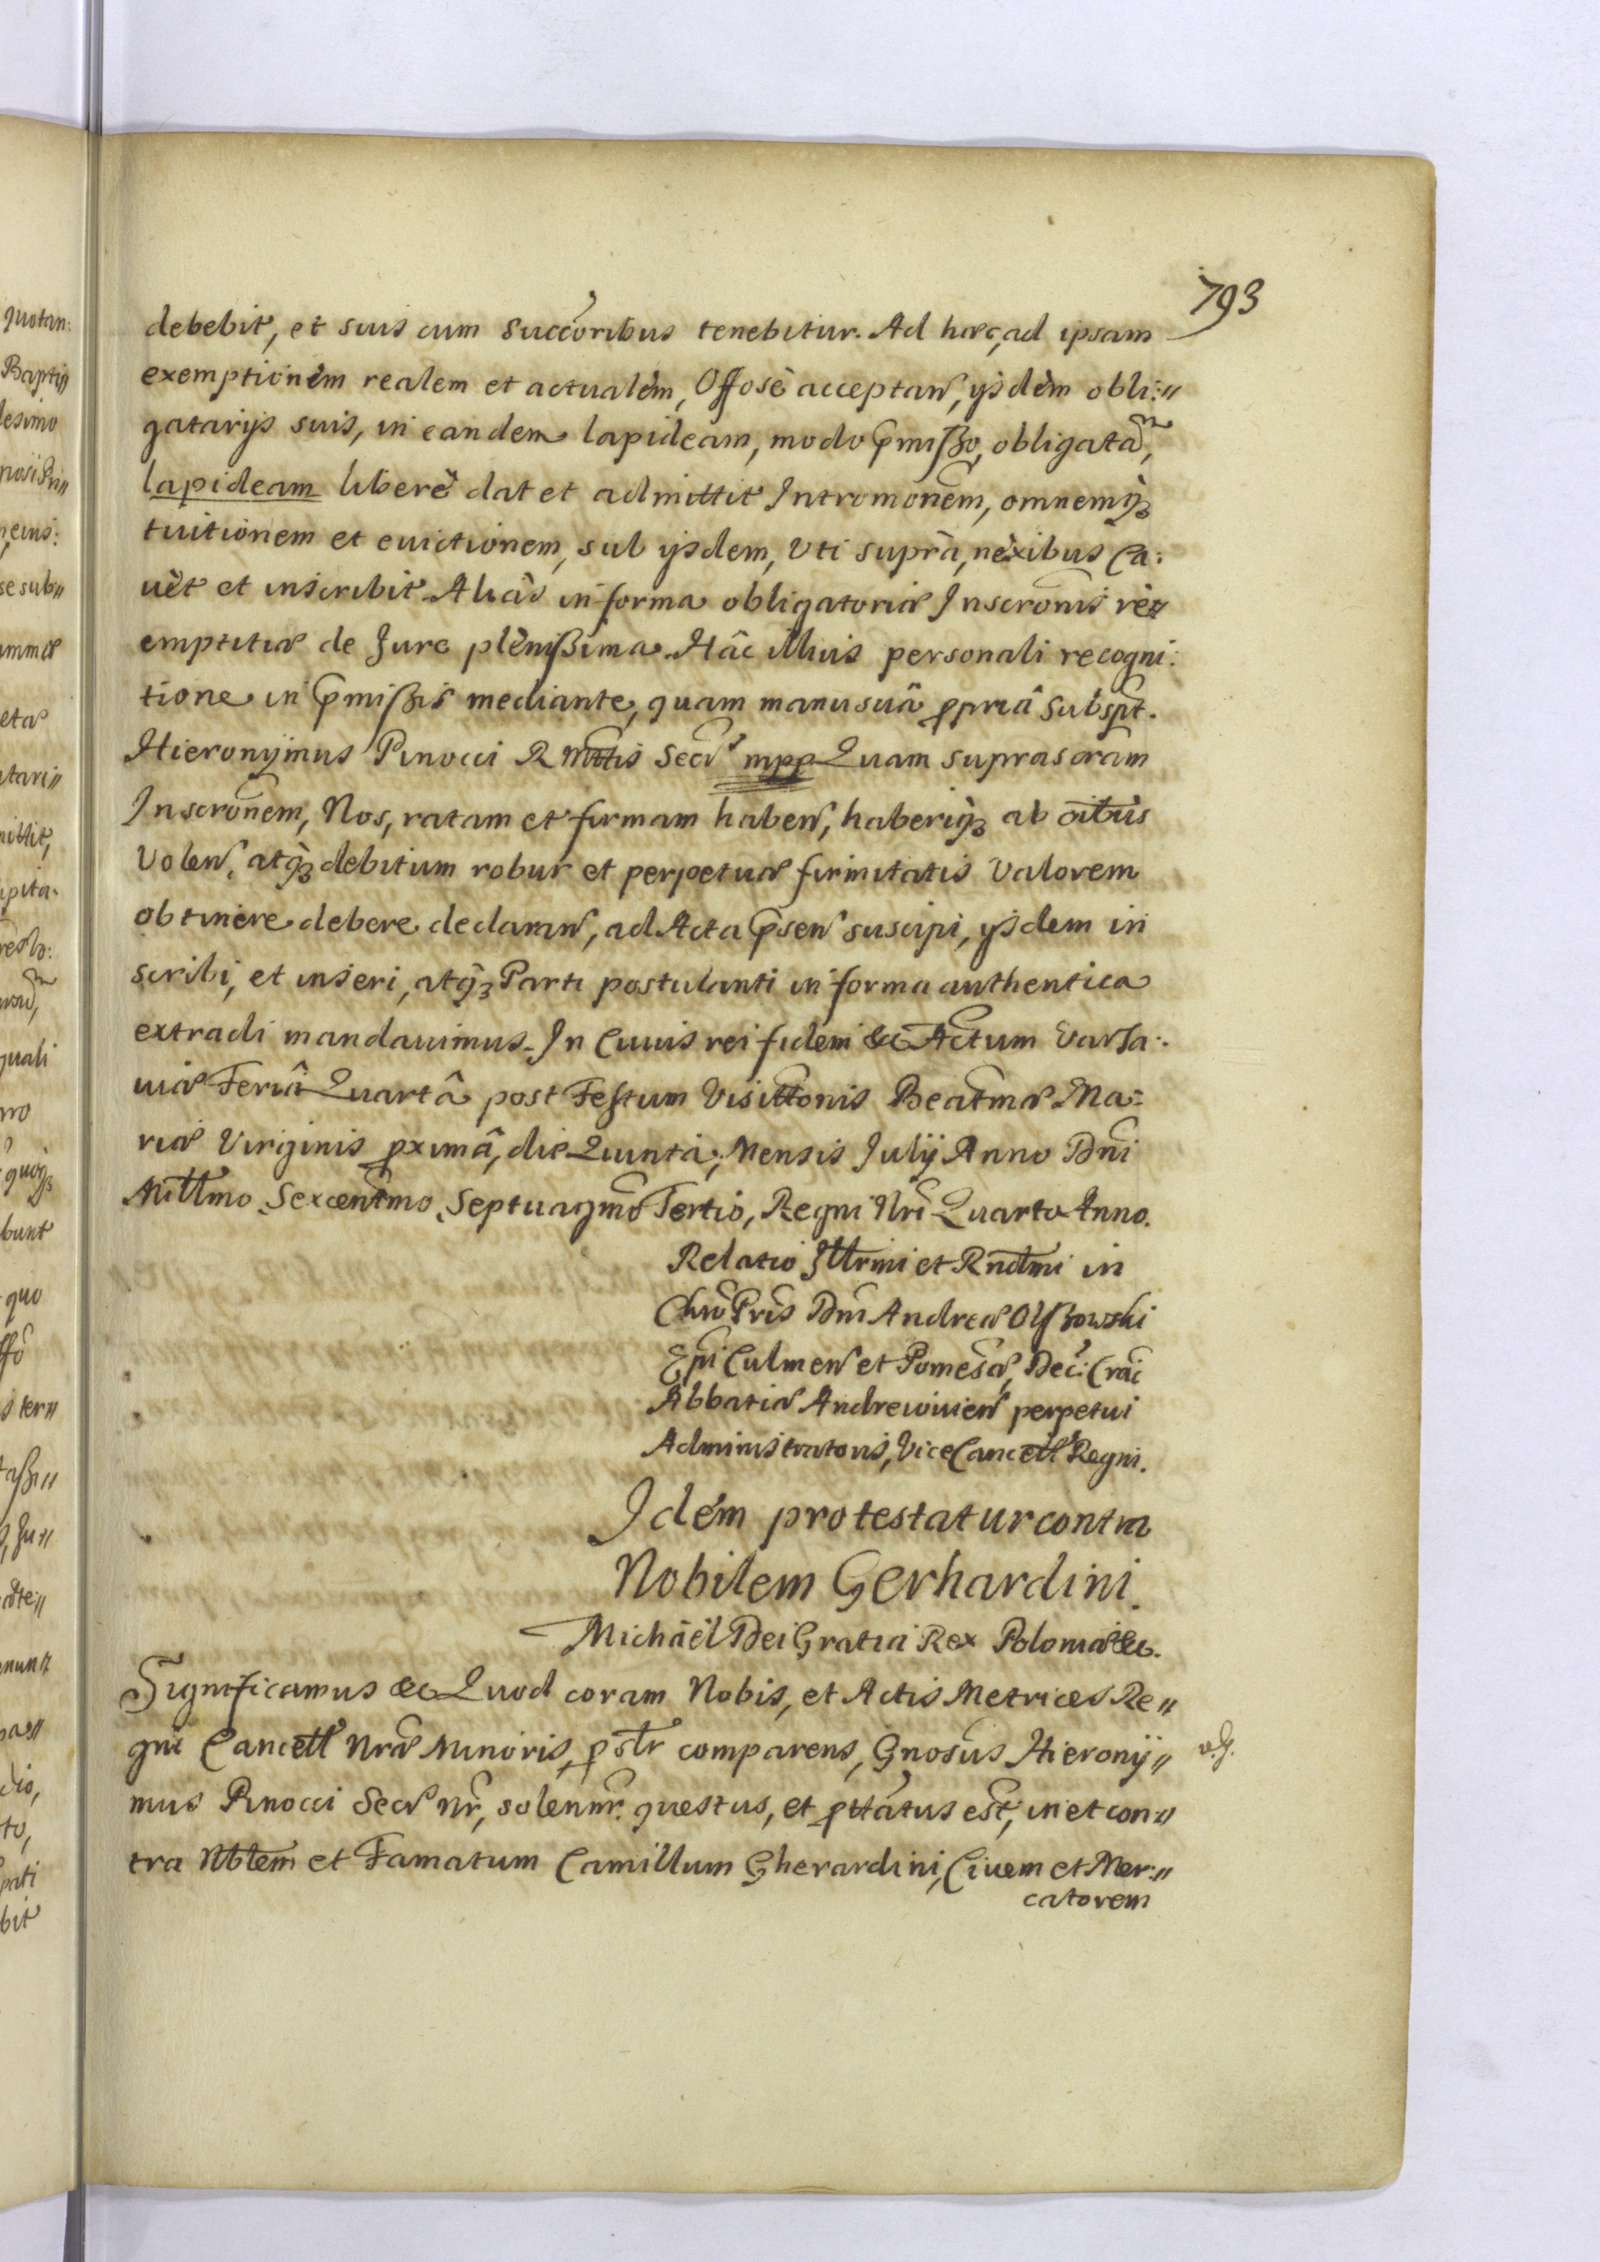 793
debebit, et suis cum Succoribus tenebitur. Ad hæc, ad ipsam
exemptionem realem et actualem, Offose acceptan, ijsdem obli://
gatarijs suis, in eandem lapideam, modo pmißo, obligatã,
lapideam liberè dat et admittit Intromonem, omnemqȝ
tuitionem et euictionem, sub ijsdem, Vti suprà, nexibus Ca:
uet et inscribit. Aliàs in forma obligatoriæ Inscronis re//
emptitiæ de Jure plenißima. Hâc illius personali recogni:
tione in pmißis mediante, quam manu suâ ppriâ Subspt.
Hieronÿmus Pinocci R Mttis Secr mpp Quam suprascram
Inscronem, Nos, ratam et firmam haben, haberiqȝ ab oibus
Volen, atqȝ debitum robur et perpetuæ firmitatis Valorem
obtinere debere declaran, ad Acta psen suscipi, ijsdem in
scribi, et inseri, atqȝ Parti postulanti in forma authentica
extradi mandauimus. In Cuius rei fidem &c Actum Varsa:
uiæ Feriâ Quartâ post Festum Visittonis Beatmæ Ma:
riæ Virginis pximâ, die Quinta, Mensis Julij Anno Dni
Millmo Sexcentmo Septuagmo Tertio, Regni Nri Quarto Anno.
Relatio Illrmi et Rndmi in
Chro Pris Dni Andreæ Olßowski
Epi Culmen et Pomesa, Dec: Crac
Abbatiæ Andreiouien perpetui
Administratoris, ViceCancell Regni.
Idem protestatur contra
Nobilem Gerhardini.
Michäel Dei Gratia Rex Poloniæ &c.
Significamus &c Quod coram Nobis, et Actis Metrices Re//
gni Cancell Nræ Minoris, pstr comparens, Gnosus Hieronÿ//
mus Pinocci Secr Nr, solennr. questus, et pttatus est, in et con//
tra Nblem et Famatum Camillum Gherardini, Ciuem et Mer://
catorem